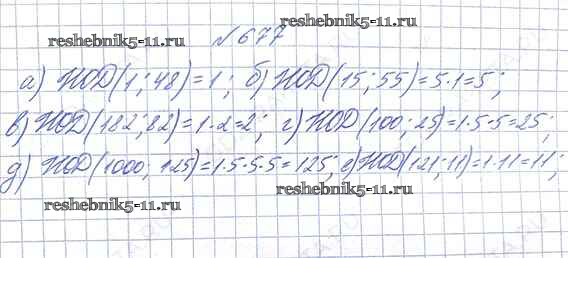 reshebnik5-11.ru
reshebnik5-11.ru № 677
а) НОД(1; 48) = 1; б) НОД(15; 55) = 5·1 = 5;
в) НОД(182; 82) = 1·2 = 2; г) НОД(100; 25) = 1·5·5 = 25;
д) НОД(1000; 125) = 1·5·5·5 = 125; е) НОД(121; 11) = 1·11 = 11;
reshebnik5-11.ru reshebnik5-11.ru